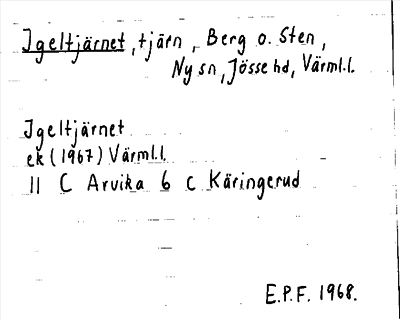 Igeltjärnet, tjärn, Berg o. Sten,
Ny sn, Jösse hd, Värml.l.
Igeltjärnet
ek (1967) Värml.l.
11 C Arvika 6 c Käringerud
E.P.F. 1968.